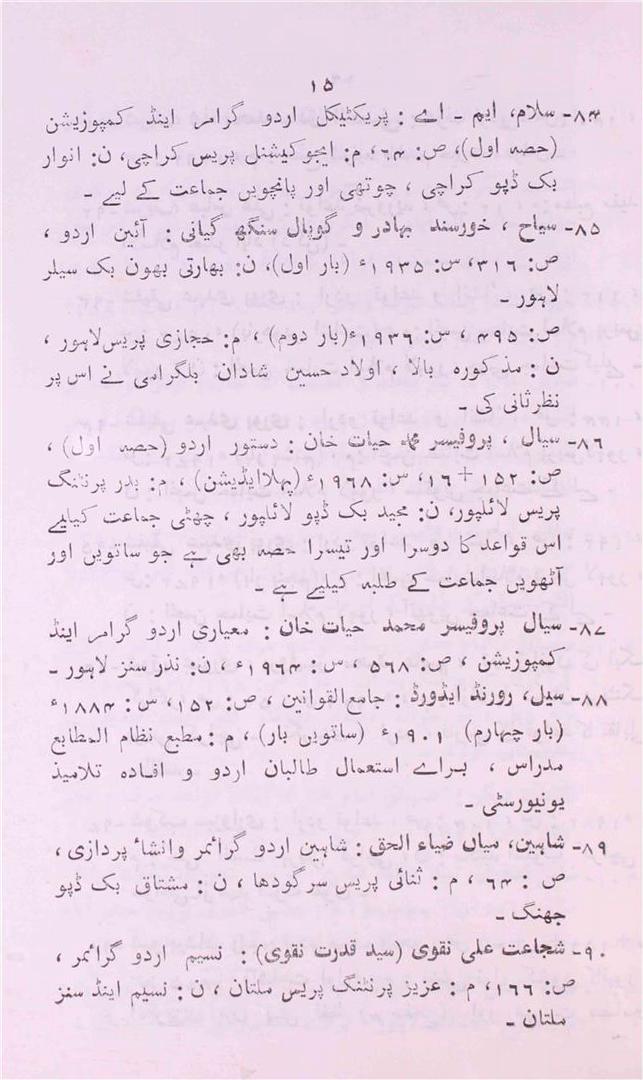 ۱۵
۸۴- سلام، ایم - اے : پریکٹیکل اردو گرامر اینڈ کمپوزیشن
(حصہ اول)، ص: ۶۴، م: ایجوکیشنل پریس کراچی، ن: انوار
بک ڈپو کراچی ، چوتھی اور پانچویں جماعت کے لیے -
۸۵- سیاح ، خورسند بہادر و گوپال سنگھ گیانی : آئین اردو ،
ص: ۳۱۶، س: ۱۹۳۵ء (بار اول)، ن: بھارتی بھون بک سیلر
لاہور -
ص: ۴۹۵، س: ۱۹۳۶ء(بار دوم) ، م: حجازی پریس لاہور ،
ن : مذکورہ بالا ، اولاد حسین شاداں بلگرامی نے اس پر
نظرثانی کی -
۸۶- سیال ، پروفیسر محمد حیات خان : دستور اردو (حصہ اول) ،
ص: ۱۵۲ + ۱۶، س: ۱۹۶۸ء (پہلا ایڈیشن) ، م: بدر پرنٹنگ
پریس لائلپور، ن: مجید بک ڈپو لائلپور ، چھٹی جماعت کیلیے
اس قواعد کا دوسرا اور تیسرا حصہ بھی ہے جو ساتویں اور
آٹھویں جماعت کے طلبہ کیلیے ہے -
۸۷- سیال پروفیسر محمد حیات خان : معیاری اردو گرامر اینڈ
کمپوزیشن ، ص: ۵۶۸، س: ۱۹۶۴ء ، ن: نذر سنز لاہور -
۸۸- سیل، رورنڈ ایڈورڈ : جامع القوانین ، ص: ۱۵۲، س: ۱۸۸۴ء
(بار چہارم) ۱۹۰۱ء (ساتویں بار) ، م: مطبع نظام المطابع
مدراس ، براے استعمال طالبان اردو و افادہ تلامیذ
یونیورسٹی -
۸۹- شاہین، میاں ضیاء الحق : شاہین اردو گرائمر وانشاء پردازی ،
ص : ۶۴ ، م : ثنائی پریس سرگودھا ، ن : مشتاق بک ڈپو
جھنگ -
۹۰- شجاعت علی نقوی (سید قدرت نقوی) : نسیم اردو گرائمر ،
ص: ۱۶۶، م : عزیز پرنٹنگ پریس ملتان ، ن: نسیم اینڈ سنز
ملتان -